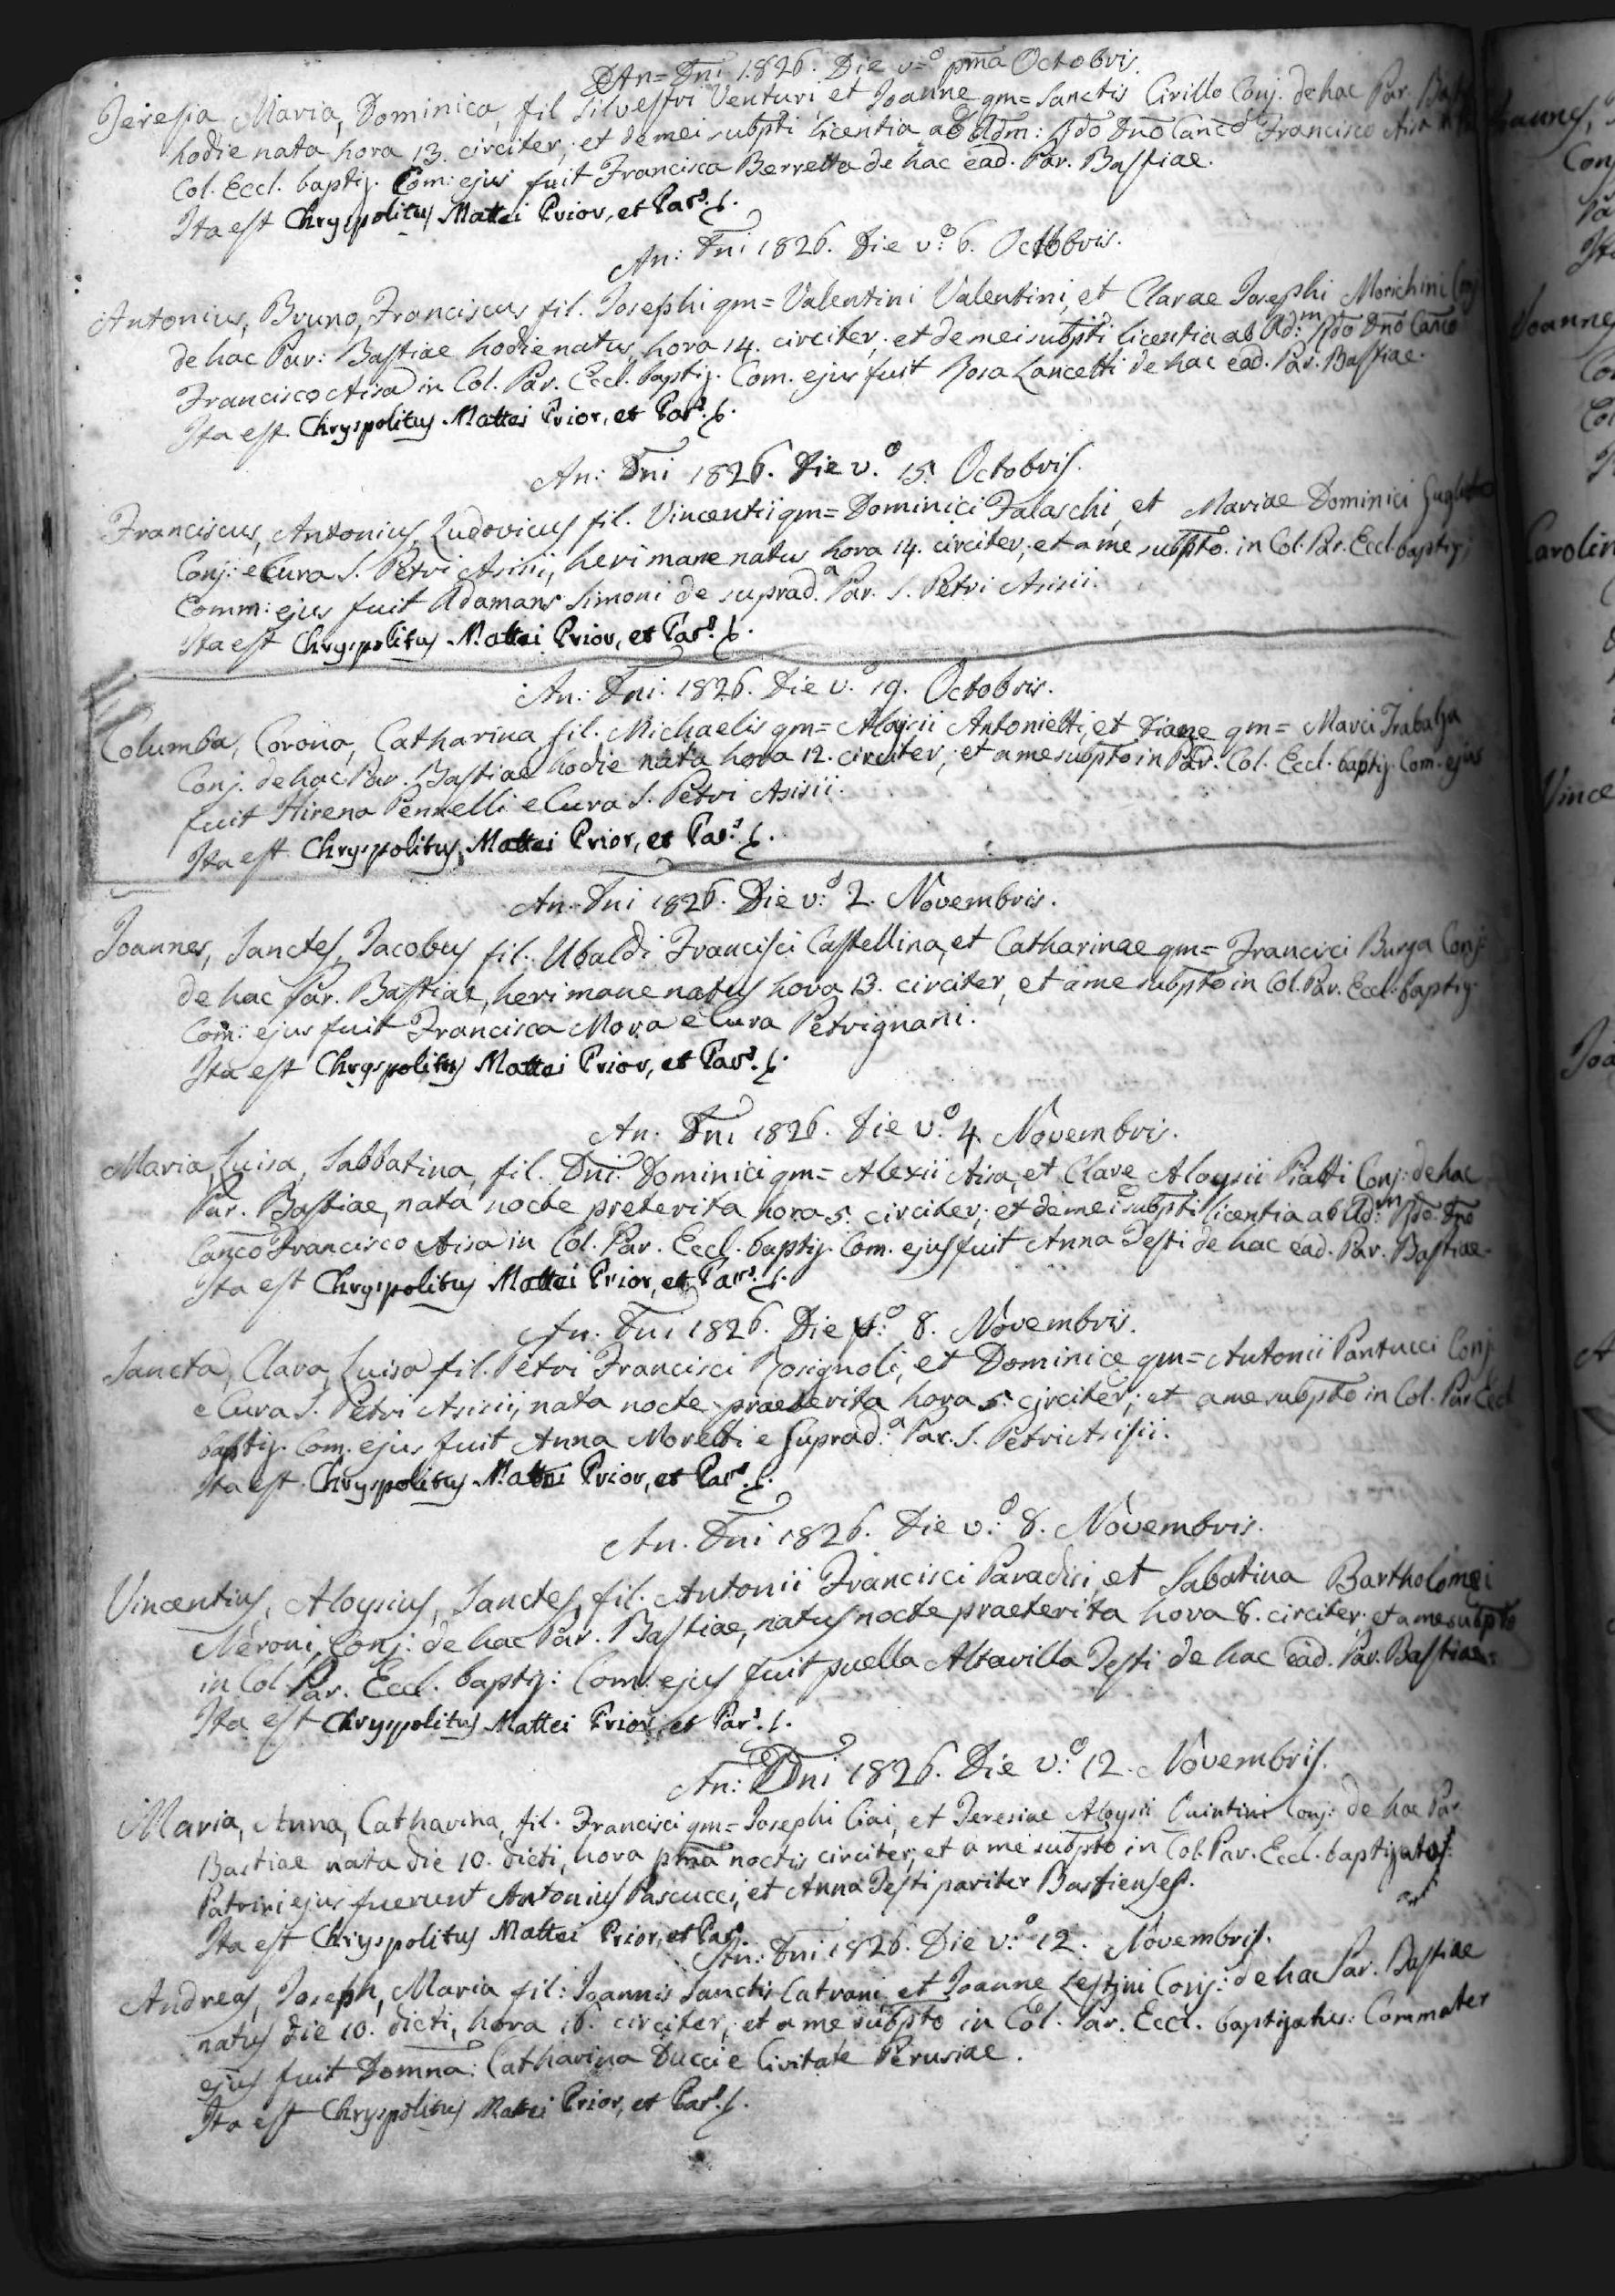 An= Dni 1826. Die v=o pma Octobris.
Teresia, Maria, Dominica, fil Silvestri Venturi, et Joanne qm= Sanctis Cirillo Conj. de hac Par.
hodie nata hora 13. circiter, et de mei subpti licentia ab Adm: Rdo Dno Canco Francisco Aisa
Col. Eccl. baptiz. Com: ejus fuit Francisca Berretta de hac ead. Par. Bastiae.
Ita est Chryspolitus Mattei Prior, et Pars.
An: Dni 1826. Die v:o 6. Octobris.
Antonius, Bruno, Franciscus fil. Josephi qm= Valentini Valentini, et Clarae Josephi Morichini Conj
de hac Par: Bastiae hodie natus, hora 14. circiter, et de mei subpti licentia ab Ad:m Rdo Dno Canco
Francisco Aisa in Col. Par. Eccl. baptiz. Com. ejus fuit Rosa Lancetti de hac ead. Par. Bastiae.
Ita est. Chryspolitus Mattei Prior, et Pars.
An: Dni 1826. Die v.o 15. Octobris.
Franciscus, Antonius, Ludovicus fil. Vincentii qm= Dominici Falaschi, et Mariae Dominici
Conj: e Cura S. Petri Asisii, heri mane natus hora 14. circiter, et a me subpto. in Col. Par. Eccl. baptiz.
Comm: ejus fuit Adamans Simoni de suprad.a Par. S. Petri Asisii.
Ita est Chryspolitus Mattei Prior, et Pars.
An: Dni: 1826. Die v.o 19. Octobris.
Columba, Corona, Catharina fil. Michaelis qm= Aloysii Antonietti, et Dianae qm= Marci Trabalza
Conj. de hac Par. Bastiae hodie nata hora 12. circiter, et a me subpto in Par. Col. Eccl. baptiz. Com. ejus
fuit Hirena Pennelli e Cura S. Petri Asisii.
Ita est Chryspolitus Mattei Prior, et Pars.
An. Dni 1826. Die v:o 2. Novembris.
Joannes, Sanctes, Jacobus fil. Ubaldi Francisci Castellina, et Catharinae qm= Francisci Burga Conj:
de hac Par. Bastiae, heri mane natus hora 13. circiter, et a me subpto in Col. Par. Eccl. baptiz.
Com: ejus fuit Francisca Mora e Cura Petrignani.
Ita est Chryspolitus Mattei Prior, et Pars.
An. Dni 1826. Die v:o 4. Novembris.
Maria, Luisa, Sabbatina, fil. Dni: Dominici qm= Alexii Aisa, et Clare Aloysii Piatti Conj: de hac
Par. Bastiae, nata nocte preterita hora 5. circiter, et de mei subpti licentia ab Ad:m Rdo. Dno
Canco Francisco Aisa in Col. Par. Eccl. baptiz. Com. ejus fuit Anna Testi de hac ead. Par. Bastiae.
Ita est Chryspolitus Mattei Prior, et Pars.
An. Dni 1826. Die v:o 8. Novembris.
Sancta, Clara, Luisa fil. Petri Francisci Rosignoli, et Dominice qm= Antonii Pantucci Conj.
e Cura S. Petri Asisii, nata nocte praeterita hora 5. circiter, et a me subpto in Col. Par Eccl
baptiz. Com. ejus fuit Anna Moretti e suprad.a Par. S. Petri Asisii.
Ita est. Chryspolitus Mattei Prior, et Pars.
An. Dni 1826. Die v.o 8. Novembris.
Vincentius, Aloysius, Sanctes, fil. Antonii Francisci Paradisi, et Sabatina Bartholomei
Neroni, Conj: de hac Par. Bastiae, natus nocte praeterita hora 8. circiter, et a me subpto
in Col. Par. Eccl. baptiz: Com: ejus fuit puella Altavilla Testi de hac ead. Par. Bastiae
Ita est Chryspolitus Mattei Prior, et Pars.
An: Dni 1826. Die v.o 12. Novembris.
Maria, Anna, Catharina, fil. Francisci qm= Josephi Ciai, et Teresiae Aloysii Quintini Conj: de hac Par
Bastiae nata die 10. dicti, hora pma noctis circiter, et a me subpto in Col. Par. Eccl. baptizata est.
Patrini ejus fuerunt Antonius Pascucci, et Anna Testi pariter Bastienses.
Ita est Chryspolitus Mattei Prior, et Pars.
An: Dni 1826. Die v:o 12. Novembris.
Andreas, Joseph, Maria fil: Joannis Sanctis Catrani, et Joanne Lestini Conj: de hac Par. Bastiae
natus die 10. dicti, hora 16. circiter, et a me subpto in Col. Par. Eccl. baptizatus: Commater
ejus fuit Domna: Catharina Ducci e Civitate Perusiae.
Ita est Chryspolitus Mattei Prior, et Pars.